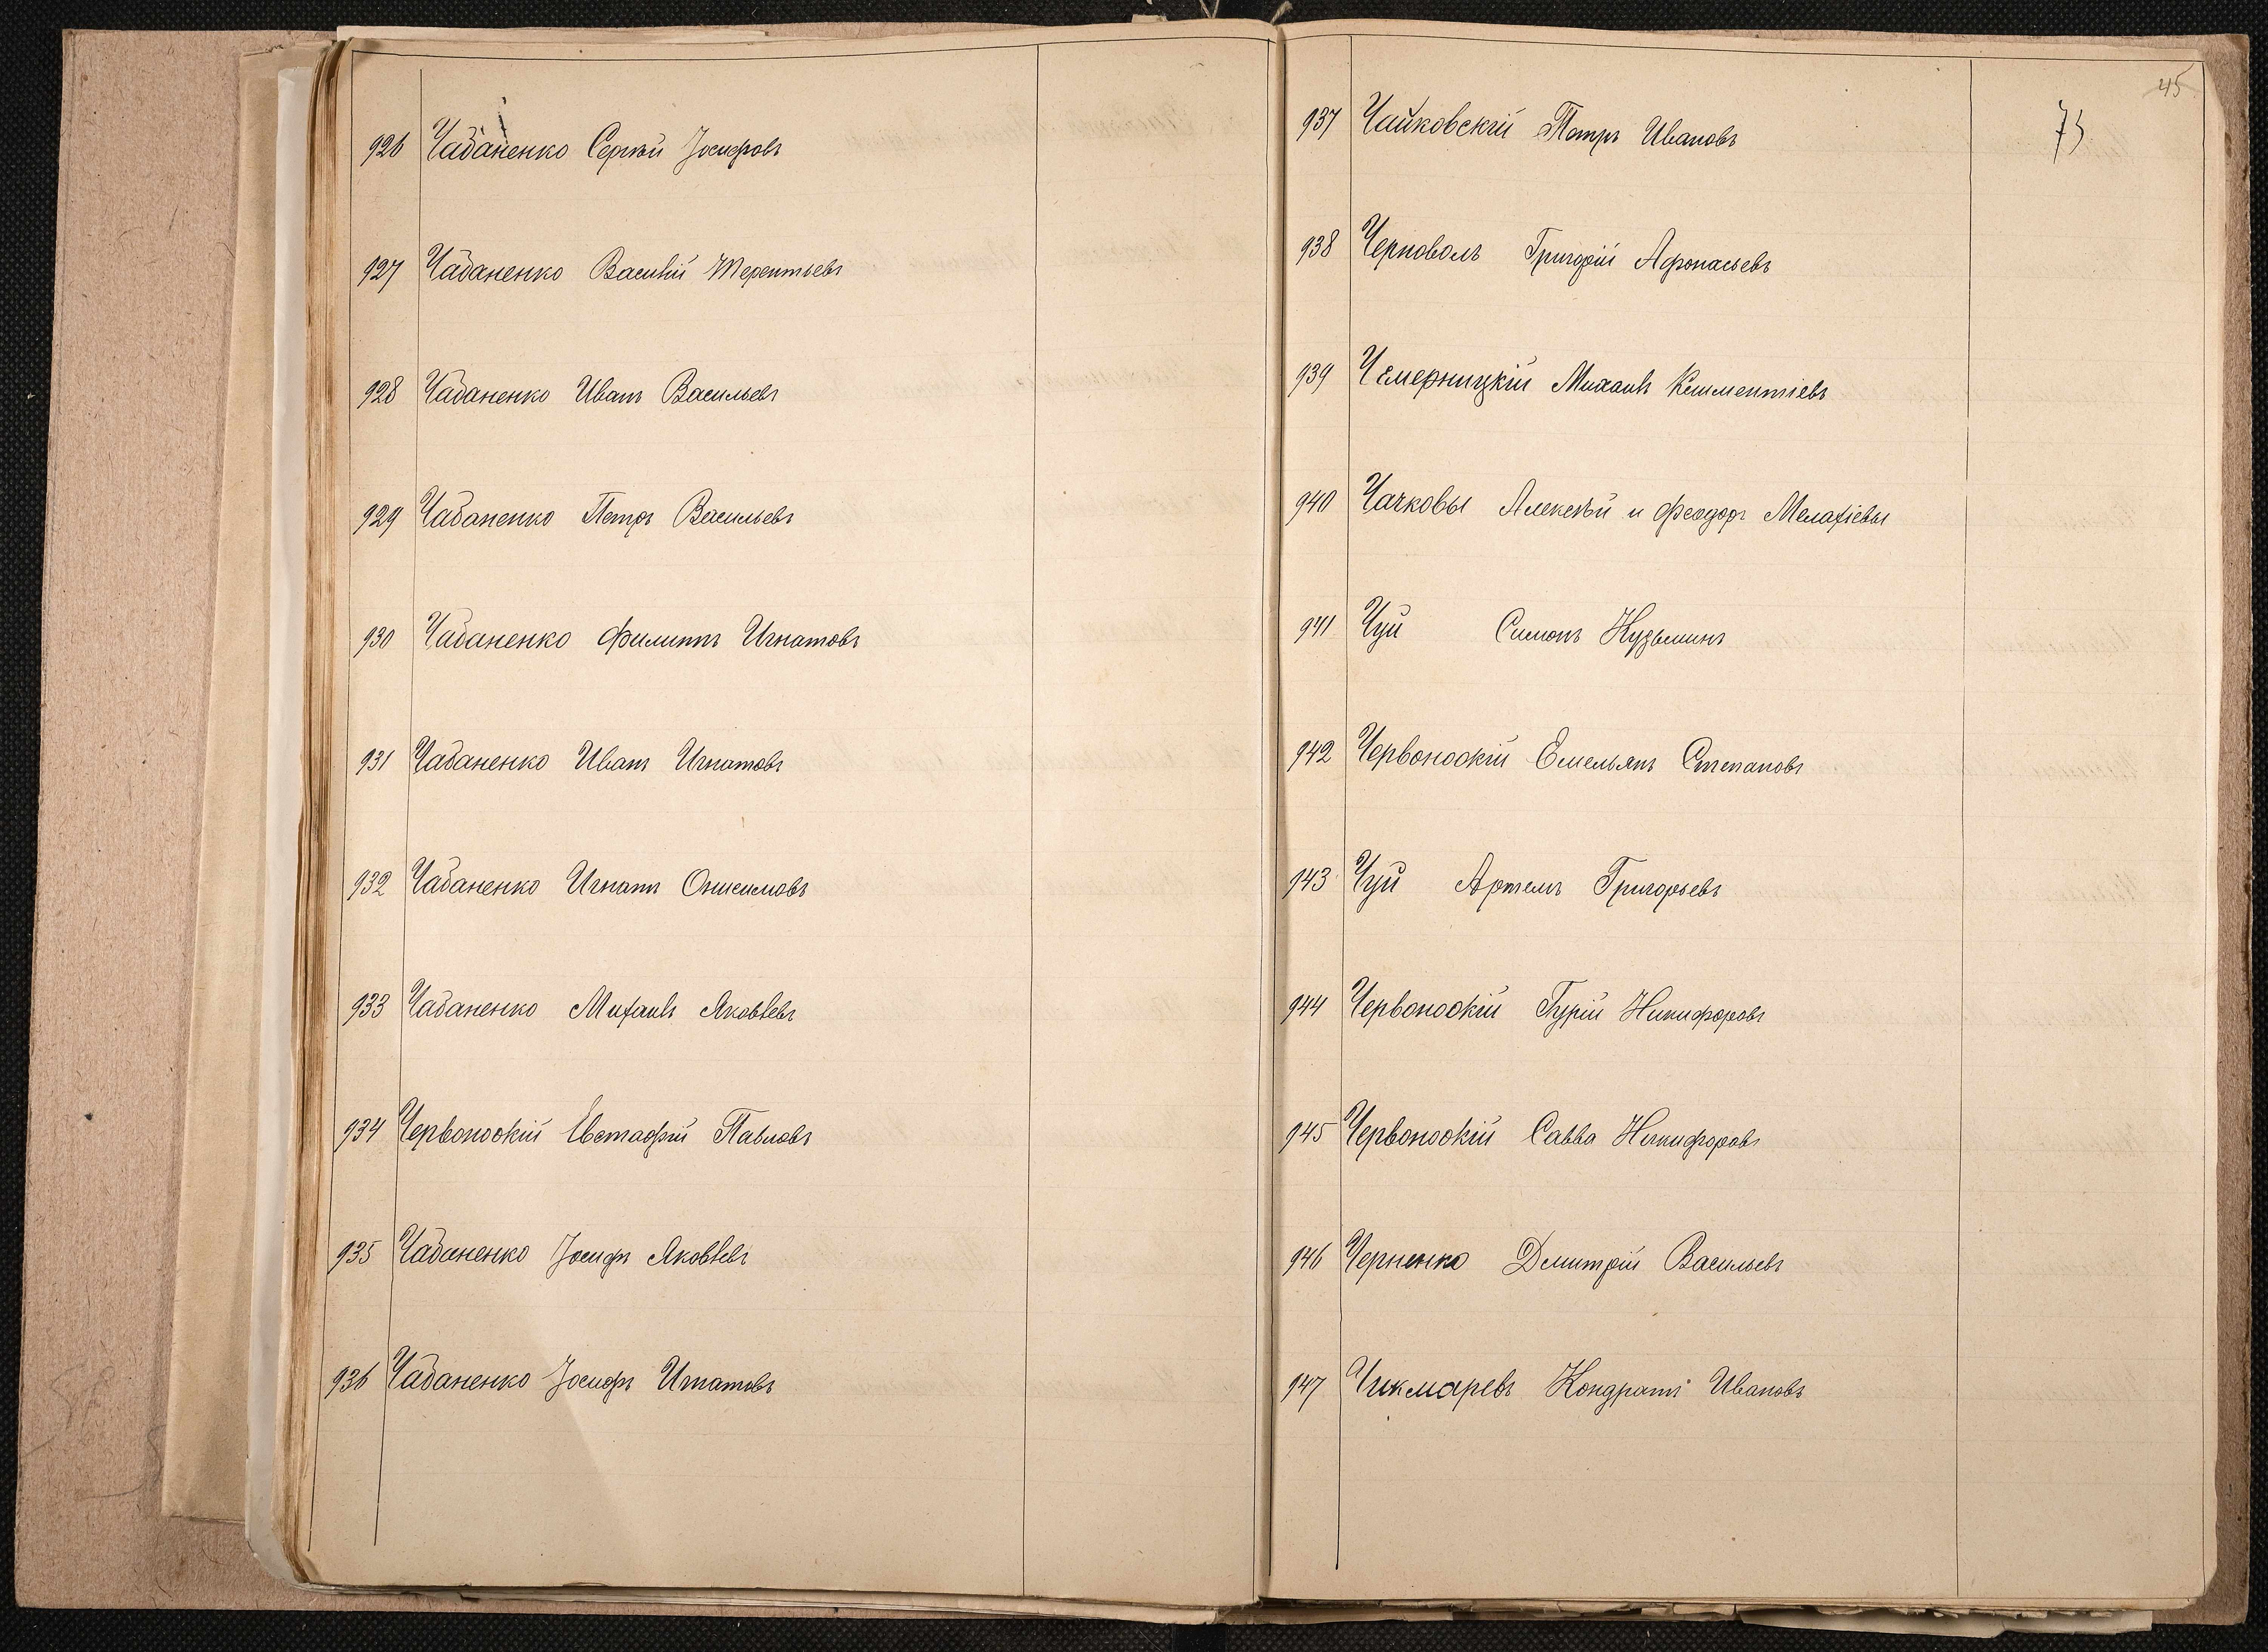 926 Чабаненко Сергѣй Іосифовъ
927 Чабаненко Василій Терентьевъ
928 Чабаненко Иванъ Васильевъ
929 Чабаненко Петръ Васильевъ
930 Чабаненко Филиппъ Игнатовъ
931 Чабаненко Иванъ Игнатовъ
932 Чабаненко Игнатъ Онисимовъ
933 Чабаненко Михаилъ Яковлевъ
934 Червоноокій Евстафій Павловъ
935 Чабаненко Іосифъ Яковлевъ
936 Чабаненко Іосифъ Игнатовъ
45
73
937 Чайковскій Петръ Ивановъ
938 Черноволъ Григорій Афонасьевъ
939 Чемерницкій Михаилъ Климентіевъ
940 Чачковы Алексѣй и Феодоръ Мелахіевы
941 Чуй Симонъ Кузьминъ
942 Червоноокій Емельянъ Степановъ
943 Чуй Артемъ Григорьевъ
944 Червоноокій Гурій Никифоровъ
945 Червоноокій Савва Никифоровъ
946 Черненко Дмитрій Васильевъ
947 Чикмаревъ Кондратъ Ивановъ